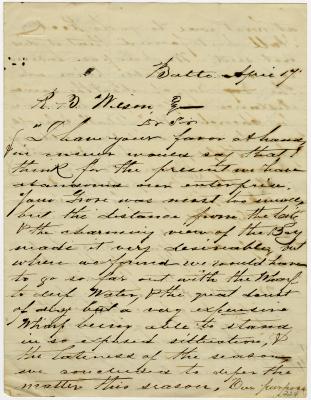 Balto April 17
R. D. Wilson Esq
Dr Sir
"I have your favor at hand
in answer would say that I
think for the present we have
abandoned our enterprise.
Your Grove was most
but the distance from the
& the charming view of the Bay
made it very desirable, but
where we found we would have
to go so far out with the Wharf
to deep Water, & the great doubt
of any but a very expensive
Wharf being able to stand
in so exposed situation, &
the lateness of the season
we concluded to defer the
matter this season, Our purpose